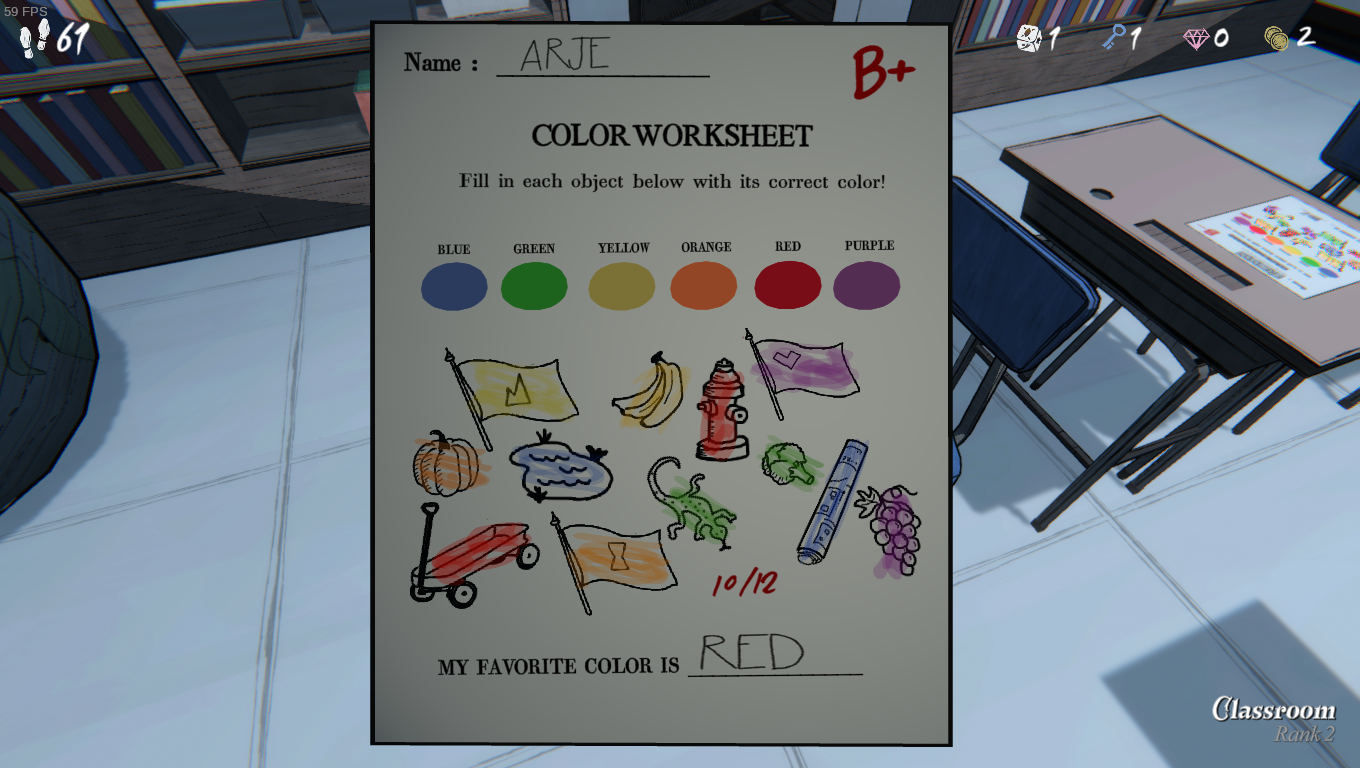 59 FPS
61
1 1 0 2
Name : ARJE
B+
COLOR WORKSHEET
Fill in each object below with its correct color!
BLUE GREEN YELLOW ORANGE RED PURPLE
10/12
MY FAVORITE COLOR IS RED
Classroom
Rank 2